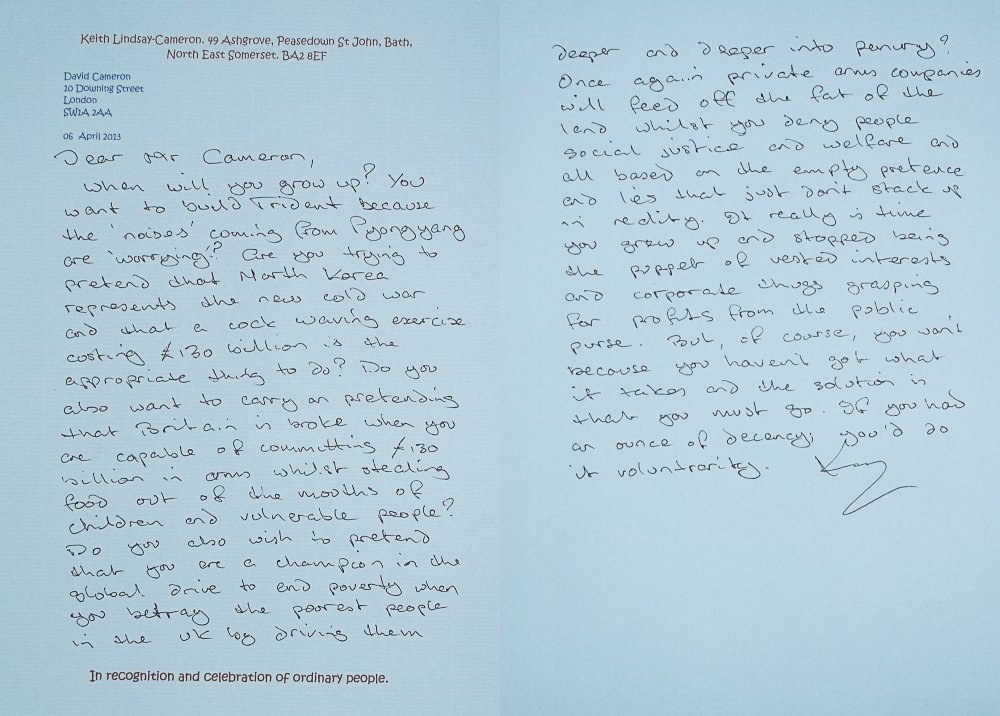 Keith Lindsay-Cameron. 49 Ashgrove, Peasedown St John, Bath,
North East Somerset. BA2 8EF
David Cameron
10 Downing Street
London
SW1A 2AA
06 April 2013
Dear Mr Cameron,
When will you grow up? You
want to build Trident because
the 'noises' coming from Pyongyang
are 'worrying'? Are you trying to
pretend that North Korea
represents the new cold war
and that a cock waving exercise
costing £130 billion is the
appropriate thing to do? Do you
also want to carry on pretending
that Britain is broke when you
are capable of committing £130
billion in arms whilst stealing
food out of the mouths of
children and vulnerable people?
Do you also wish to pretend
that you are a champion in the
global drive to end poverty when
you betray the poorest people
in the UK by driving them
In recognition and celebration of ordinary people.
deeper and deeper into penury?
Once again private arms companies
will feed off the fat of the
land whilst you deny people
social justice and welfare and
all based on the empty pretence
and lies that just don't stack up
in reality. It really is time
you grew up and stopped being
the puppet of vested interests
and corporate thugs grasping
for profits from the public
purse. But, of course, you won't
because you haven't got what
it takes and the solution is
that you must go. If you had
an ounce of decency, you'd do
it voluntrarity.